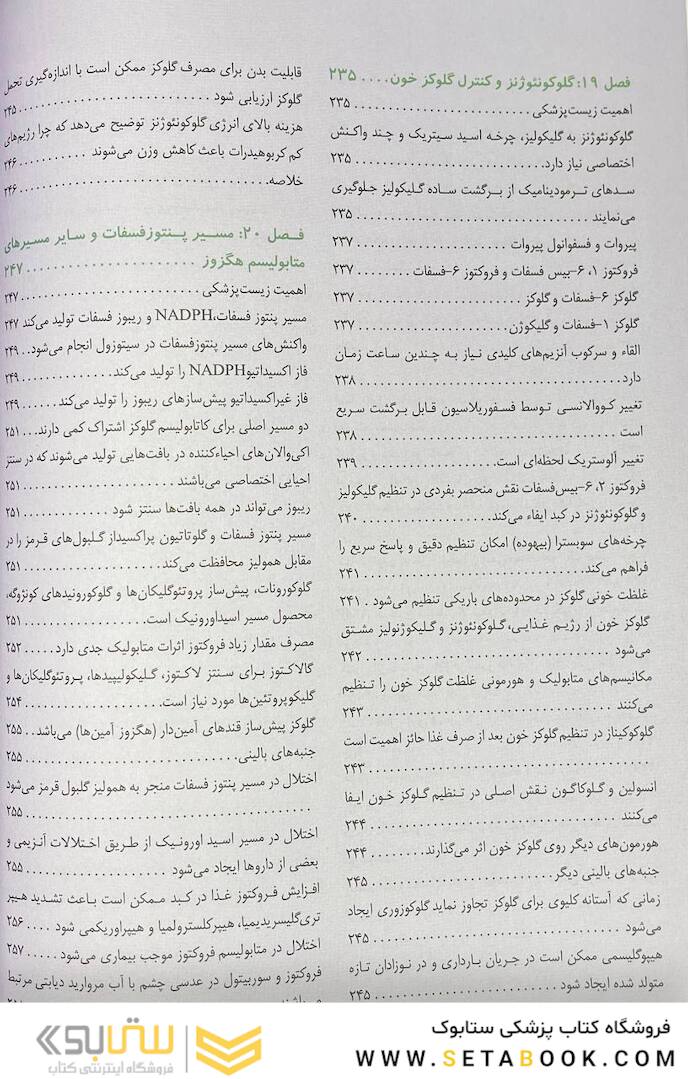 فصل ۱۹: گلوکونئوژنز و کنترل گلوکز خون.... ۲۳۵
اهمیت زیست‌پزشکی............................ ۲۳۵
گلوکونئوژنز به گلیکولیز، چرخه اسید سیتریک و چند واکنش
اختصاصی نیاز دارد............................ ۲۳۵
سدهای ترمودینامیک از برگشت ساده گلیکولیز جلوگیری
می‌نمایند............................ ۲۳۵
پیروات و فسفوانول پیروات............................ ۲۳۷
فروکتوز ۱، ۶-بیس فسفات و فروکتوز ۶-فسفات........ ۲۳۷
گلوکز ۶-فسفات و گلوکز............................ ۲۳۷
گلوکز ۱-فسفات و گلیکوژن............................ ۲۳۷
القاء و سرکوب آنزیم‌های کلیدی نیاز به چندین ساعت زمان
دارد............................ ۲۳۸
تغییر کووالانسی توسط فسفوریلاسیون قابل برگشت سریع
است............................ ۲۳۸
تغییر آلوستریک لحظه‌ای است............................ ۲۳۹
فروکتوز ۲، ۶-بیس‌فسفات نقش منحصر بفردی در تنظیم گلیکولیز
و گلوکونئوژنز در کبد ایفاء می‌کند............................ ۲۴۰
چرخه‌های سوبسترا (بیهوده) امکان تنظیم دقیق و پاسخ سریع را
فراهم می‌کند............................ ۲۴۱
غلظت خونی گلوکز در محدوده‌های باریکی تنظیم می‌شود. ۲۴۱
گلوکز خون از رژیم غذایی، گلوکونئوژنز و گلیکوژنولیز مشتق
می‌شود............................ ۲۴۲
مکانیسم‌های متابولیک و هورمونی غلظت گلوکز خون را تنظیم
می‌کنند............................ ۲۴۳
گلوکوکیناز در تنظیم گلوکز خون بعد از صرف غذا حائز اهمیت است
............................ ۲۴۳
انسولین و گلوکاگون نقش اصلی در تنظیم گلوکز خون ایفا
می‌کنند............................ ۲۴۴
هورمون‌های دیگر روی گلوکز خون اثر می‌گذارند......... ۲۴۴
جنبه‌های بالینی دیگر............................ ۲۴۵
زمانی که آستانه کلیوی برای گلوکز تجاوز نماید گلوکوزوری ایجاد
می‌شود............................ ۲۴۵
هیپوگلیسمی ممکن است در جریان بارداری و در نوزادان تازه
متولد شده ایجاد شود............................ ۲۴۵
قابلیت بدن برای مصرف گلوکز ممکن است با اندازه‌گیری تحمل
گلوکز ارزیابی شود............................ ۲۴۵
هزینه بالای انرژی گلوکونئوژنز توضیح می‌دهد که چرا رژیم‌های
کم کربوهیدرات باعث کاهش وزن می‌شوند............ ۲۴۶
خلاصه............................ ۲۴۶
فصل ۲۰: مسیر پنتوزفسفات و سایر مسیرهای
متابولیسم هگزوز............................ ۲۴۷
اهمیت زیست‌پزشکی............................ ۲۴۷
مسیر پنتوز فسفات،NADPH و ریبوز فسفات تولید می‌کند ۲۴۷
واکنش‌های مسیر پنتوزفسفات در سیتوزول انجام می‌شود.. ۲۴۹
فاز اکسیداتیوNADPH را تولید می‌کند............................ ۲۴۹
فاز غیراکسیداتیو پیش‌سازهای ریبوز را تولید می‌کند..... ۲۴۹
دو مسیر اصلی برای کاتابولیسم گلوکز اشتراک کمی دارند... ۲۵۱
اکی‌والان‌های احیاءکننده در بافت‌هایی تولید می‌شوند که در سنتز
احیایی اختصاصی می‌باشند............................ ۲۵۱
ریبوز می‌تواند در همه بافت‌ها سنتز شود............ ۲۵۱
مسیر پنتوز فسفات و گلوتاتیون پراکسیداز گلبول‌های قرمز را در
مقابل همولیز محافظت می‌کند............................ ۲۵۱
گلوکورونات، پیش‌ساز پروتئوگلیکان‌ها و گلوکورونیدهای کونژوگه،
محصول مسیر اسیداورونیک است............................ ۲۵۱
مصرف مقدار زیاد فروکتوز اثرات متابولیک جدی دارد..... ۲۵۲
گالاکتوز برای سنتز لاکتوز، گلیکولیپیدها، پروتئوگلیکان‌ها و
گلیکوپروتئین‌ها مورد نیاز است............................ ۲۵۴
گلوکز پیش‌ساز قندهای آمین‌دار (هگزوز آمین‌ها) می‌باشد.. ۲۵۵
جنبه‌های بالینی............................ ۲۵۵
اختلال در مسیر پنتوز فسفات منجر به همولیز گلبول قرمز می‌شود
............................ ۲۵۵
اختلال در مسیر اسید اورونیک از طریق اختلالات آنزیمی و
بعضی از داروها ایجاد می‌شود............................ ۲۵۵
افزایش فروکتوز غذا در کبد ممکن است باعث تشدید هیپر
تری‌گلیسریدیمیا، هیپرکلسترولمیا و هیپراوریکمی شود.... ۲۵۶
اختلال در متابولیسم فروکتوز موجب بیماری می‌شود...... ۲۵۷
فروکتوز و سوربیتول در عدسی چشم با آب مروارید دیابتی مرتبط
فروشگاه کتاب پزشکی ستابوک
WWW.SETABOOK.COM
ستابوک
فروشگاه اینترنتی کتاب